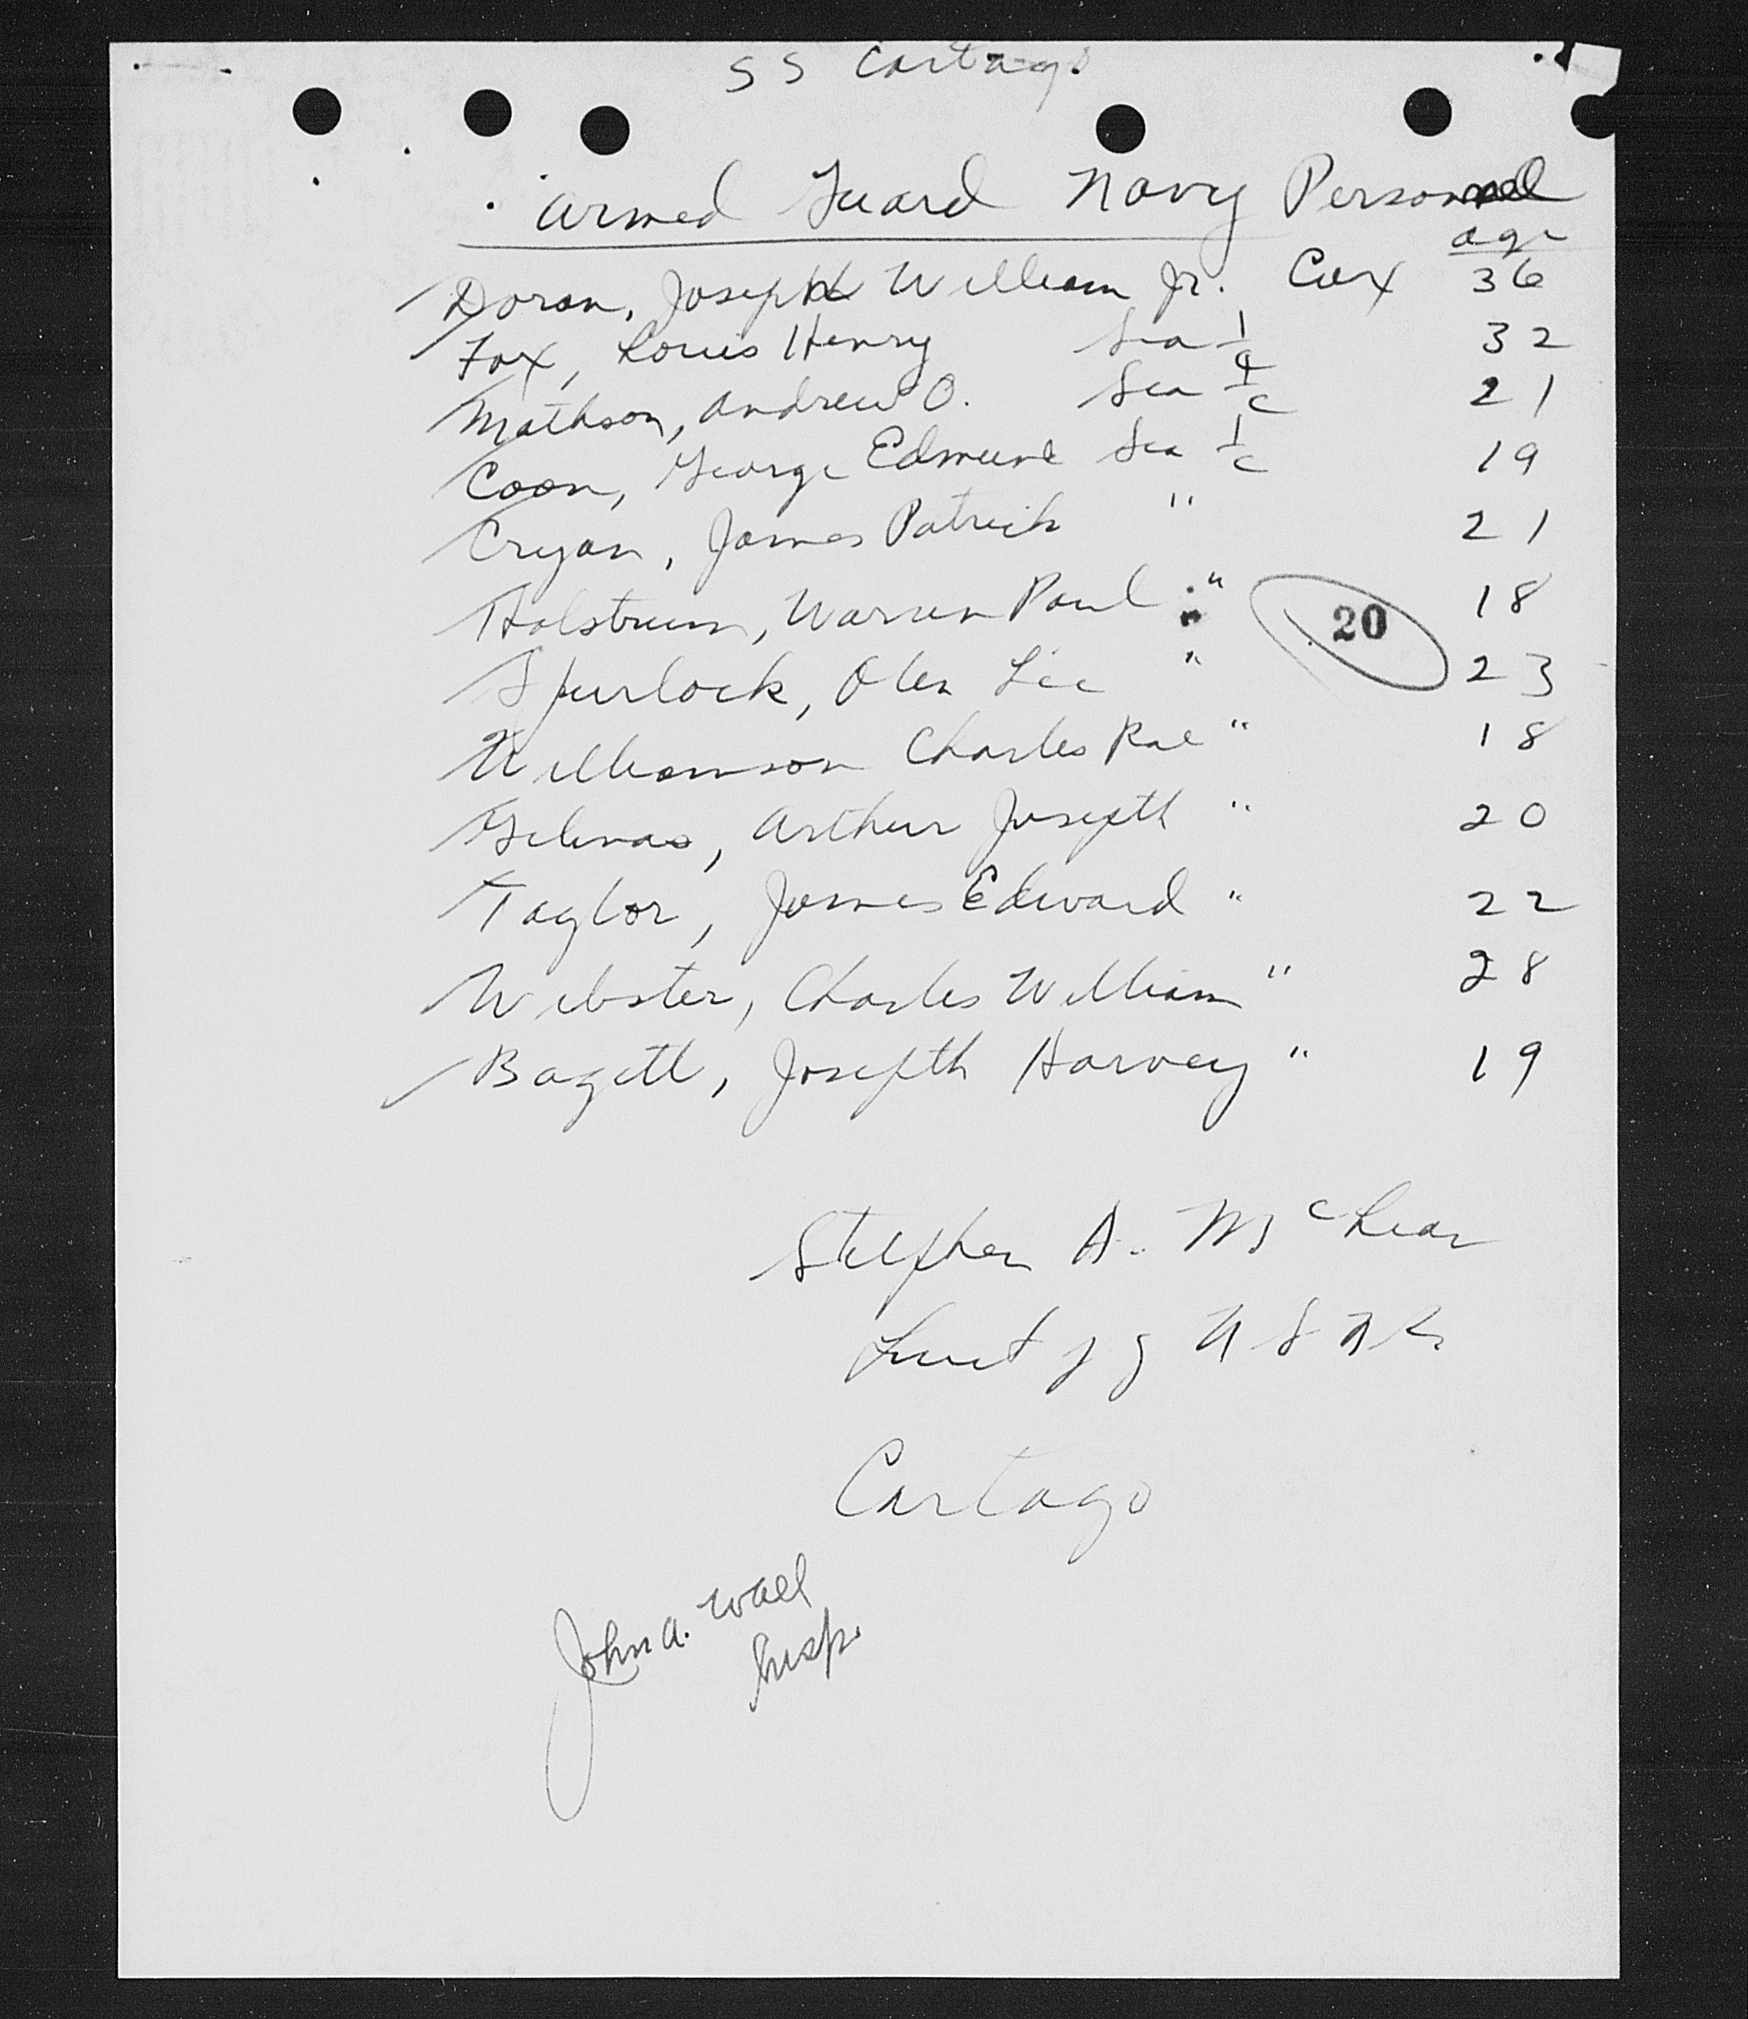 SS Cartago
Armed Guard Navy Personnel
age
Doran, Joseph William Jr. Cox 36
Fox, Louis Henry Sea 1/c 32
Mathson, Andrew O. Sea 1/c 21
Coon, George Edmund Sea 1/c 19
Cryan, James Patrick " 21
Holstrum, Warren Paul " 18
20
Spurlock, Olen Lee " 23
Williamson Charles Rae " 18
Gelinas, Arthur Josepth " 20
Taylor, James Edward " 22
Webster, Charles William " 28
Bagett, Josepth Harvey " 19
Stephen A. McLear
Lieut jg USNR
Cartago
John A. Wall
Insp.